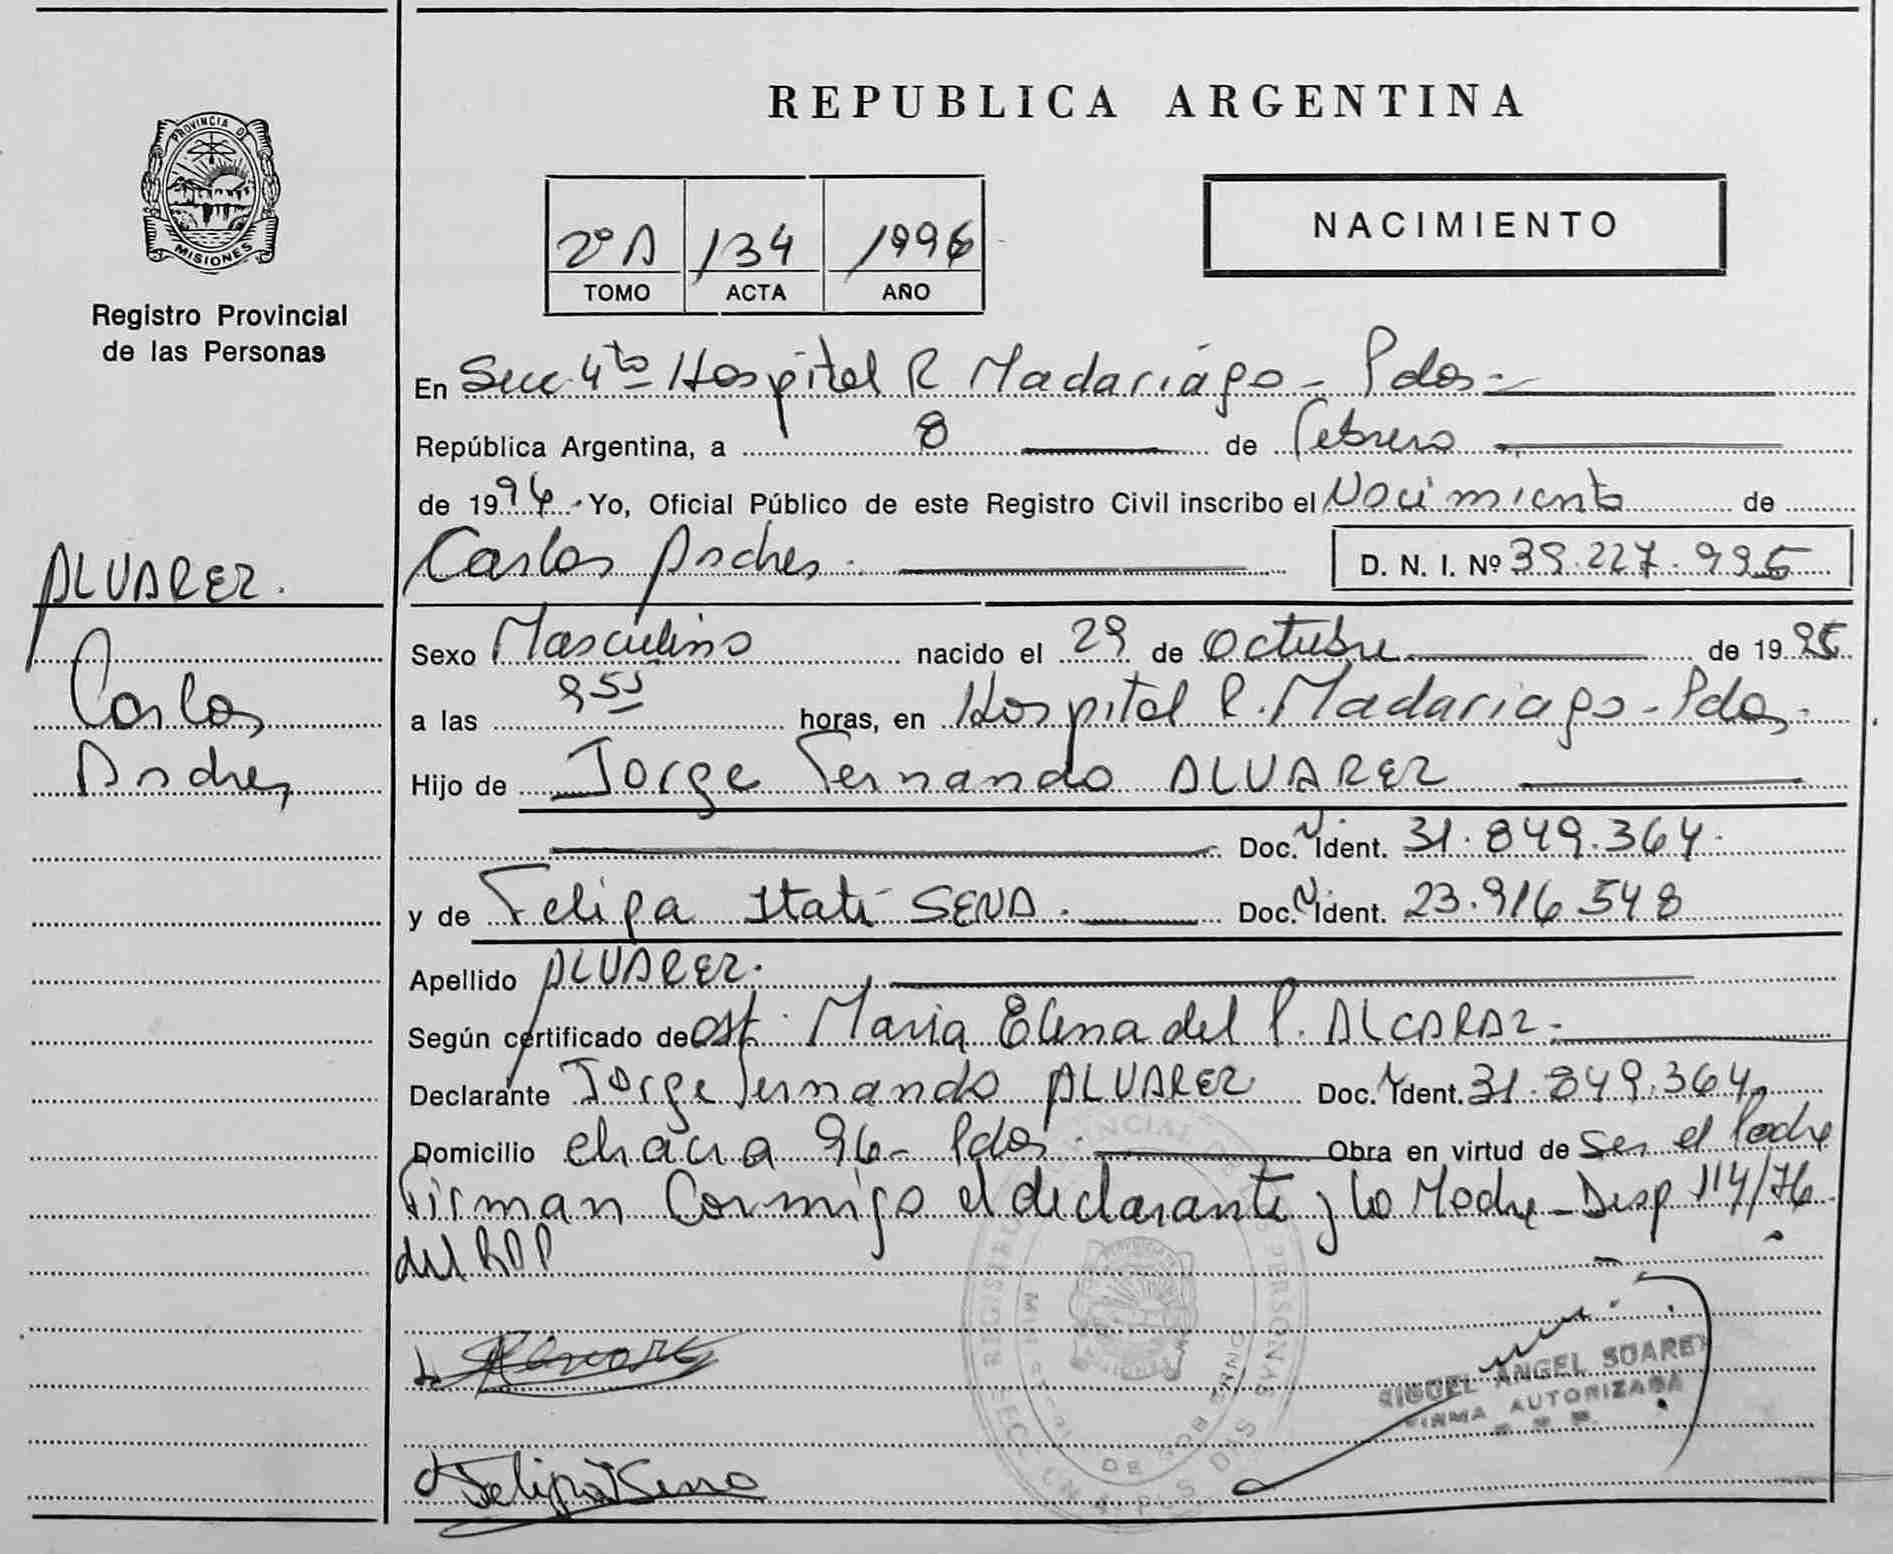 REPUBLICA ARGENTINA
PROVINCIA DE
MISIONES
Registro Provincial
de las Personas
2º A 134 1996
TOMO ACTA AÑO
NACIMIENTO
En Secc. 4ta Hospital R Madariaga - Pdas -
República Argentina, a 8 de Febrero
de 1996. Yo, Oficial Público de este Registro Civil inscribo el Nacimiento de
Carlos Andres. D. N. I. Nº 39.227.995
ALVAREZ.
Carlos
Andres
Sexo Masculino nacido el 29 de Octubre de 1995
a las 955 horas, en Hospital R. Madariaga - Pdas.
Hijo de Jorge Fernando ALVAREZ
Doc. N Ident. 31.849.364.
y de Felipa Itatí SENA. Doc. N Ident. 23.916.548
Apellido ALVAREZ.
Según certificado de Ost. Maria Elena del P. ALCARAZ.
Declarante Jorge Fernando ALVAREZ Doc. N Ident. 31.849.364,
Domicilio chacra 96 - Pdas. Obra en virtud de ser el Padre
Firman Conmigo el declarante y la Madre - Disp 114/76
del RPP
Felipa I Sena
MIGUEL ANGEL SUAREZ
FIRMA AUTORIZADA